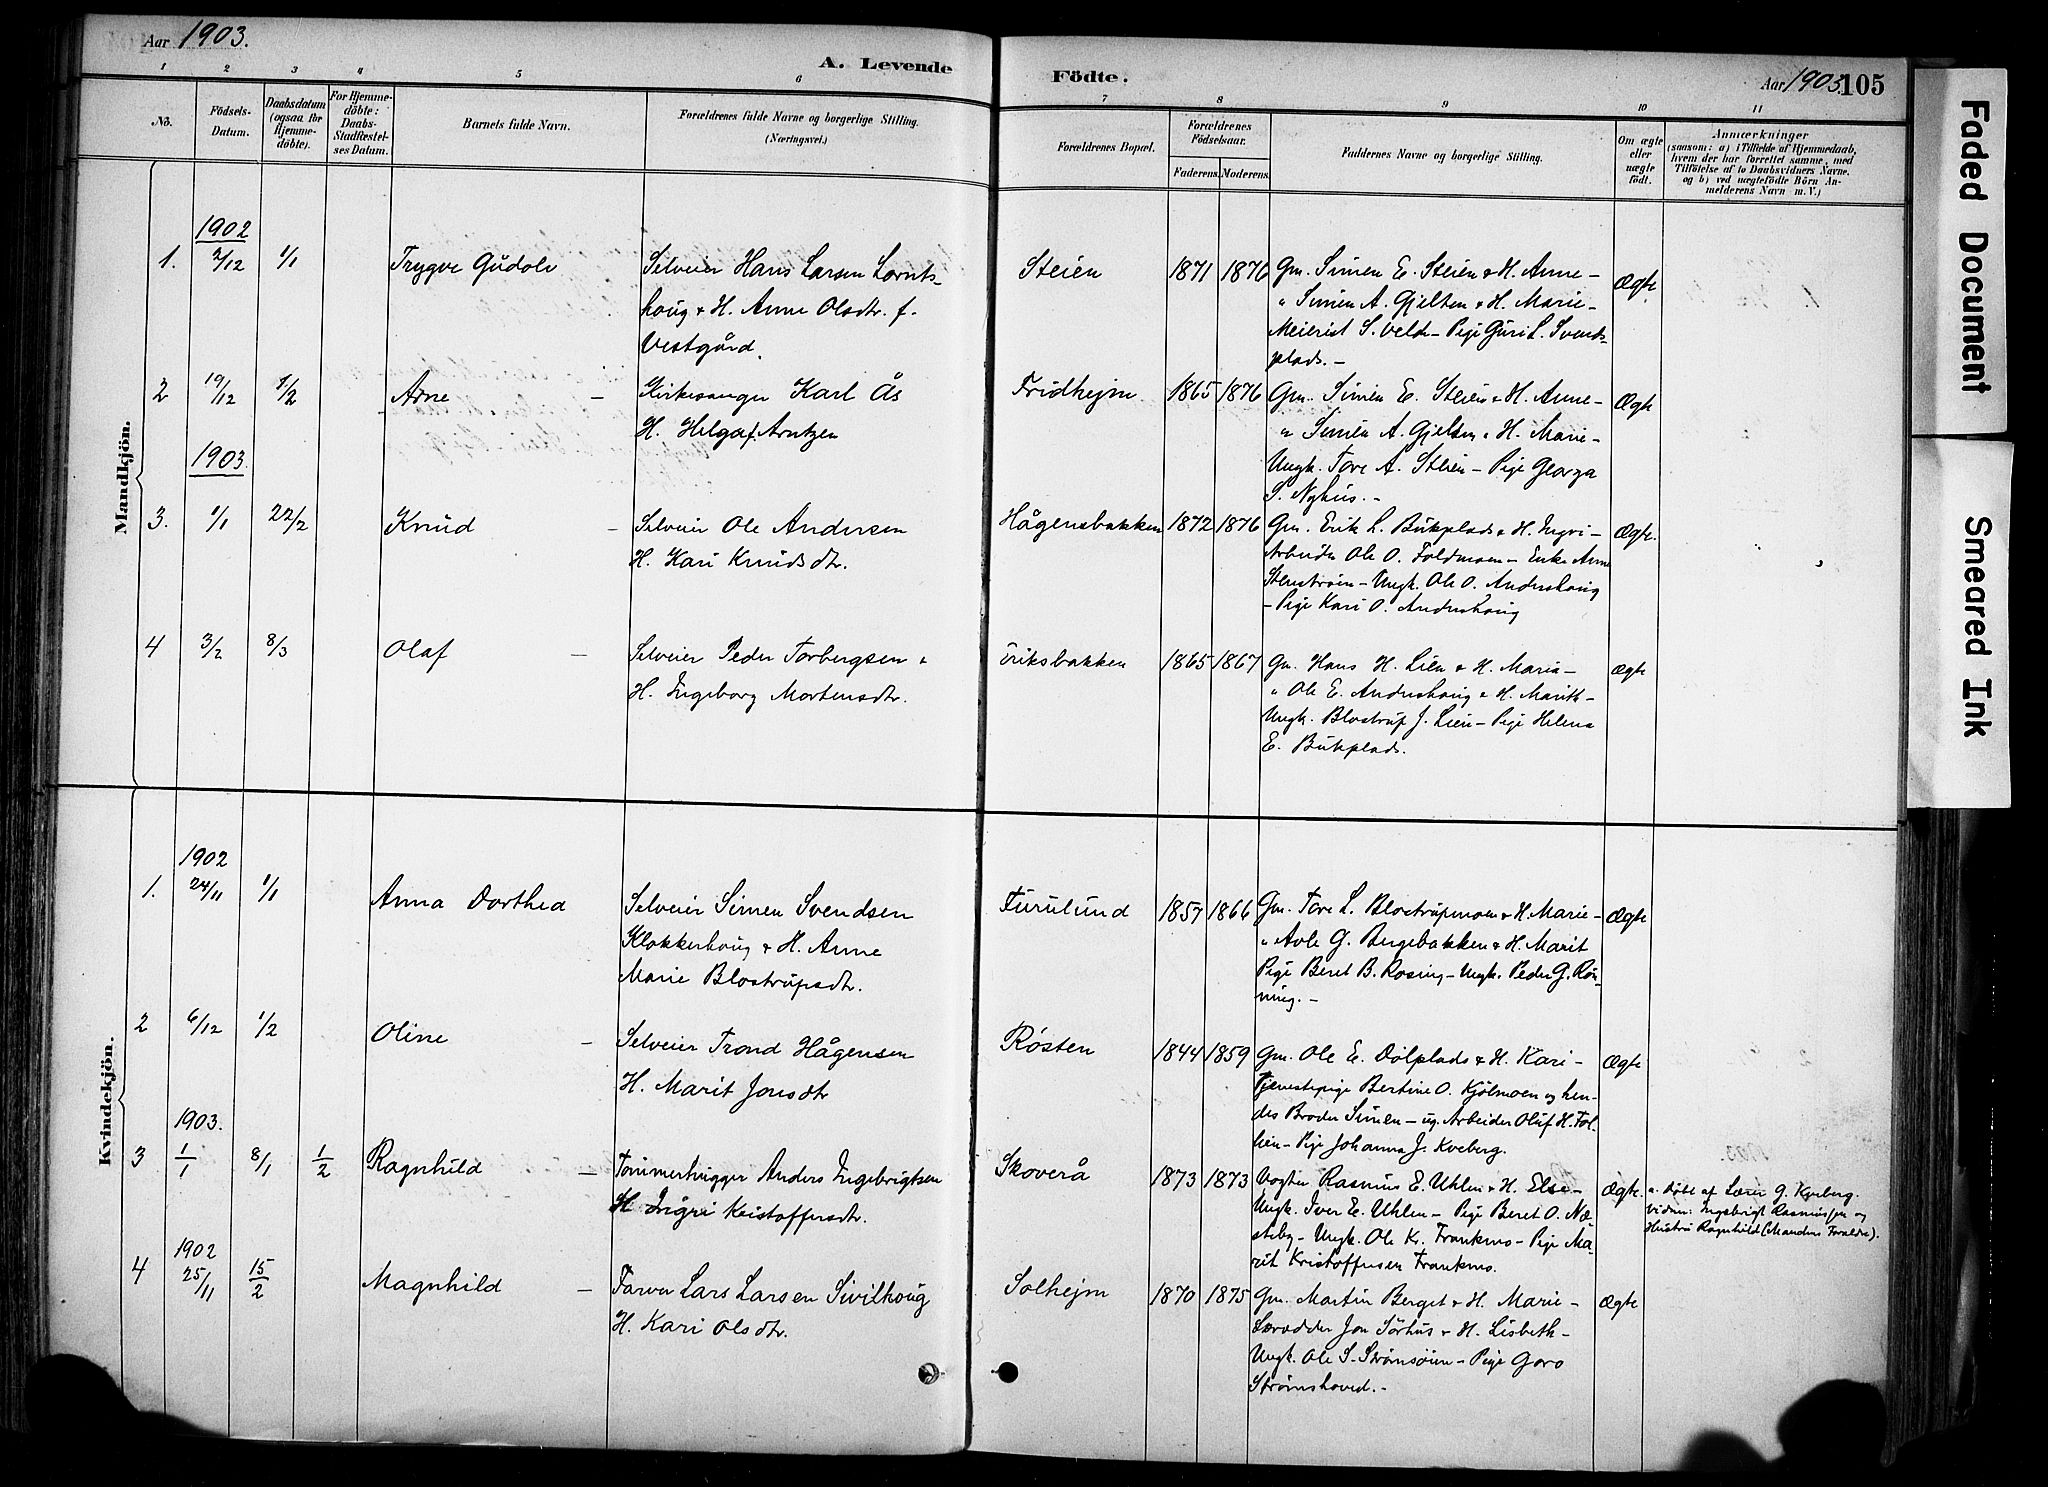 Aar 1903.
A. Levende
Födte.
Aar 1903. 105
1 2 3 4 5 6 7 8 9 10 11
No.
Födsels-
Datum.
Daabsdatum
(ogsaa for
Hjemme-
döbte).
For Hjemme-
döbte:
Daabs-
Stadfæstel-
ses Datum.
Barnets fulde Navn.
Forældrenes fulde Navne og borgerlige Stilling.
(Næringsvei.)
Forældrenes Bopæl.
Forældrenes
Födselsaar.
Faderens. Moderens.
Faddernes Navne og borgerlige Stilling.
Om ægte
eller
uægte
födt.
Anmærkninger
(saasom: a) i Tilfælde af Hjemmedaab,
hvem der har forrettet samme, med
Tilföielse af to Daabsvidners Navne,
og b) ved uægtefödte Börn An-
melderens Navn m. V.)
Mandkjön.
1902
1. 2/12 1/1 Trygve Gudolv
Selveier Hans Larsen Lornts-
houg & H. Anne Olsdtr. f.
Vestgård.
Steien 1871 1876
Gm. Simen E. Steien & H. Anne –
" Simen A. Gjelten & H. Marie –
Meierist S. Veld – Pige Guri L. Svends-
plads. –
Ægte
2 19/12 1/2 Arne –
Kirkesanger Karl Ås
H. Helga f. Arntzen
Fridhejm 1865 1876
Gm. Simen E. Steien & H. Anne –
" Simen A. Gjelten & H. Marie –
Ungk. Tore A. Steien – Pige Georga
S. Nyhus. –
Ægte
1903.
3. 1/1 22/2 Knud –
Selveier Ole Andersen
H. Kari Knudsdtr.
Hågensbakken 1872 1876
Gm. Erik L. Bukplads & H. Ingri –
Arbeider Ole O. Foldmoen – Enke Anne
Stenstrøen – Ungk. Ole O. Andershoug
– Pige Kari O. Andershoug
Ægte.
4 3/2 8/3 Olaf –
Selveier Peder Torbergsen &
H. Ingeborg Mortensdtr.
Eriksbakken 1865 1867
Gm. Hans H. Lien & H. Maria –
" Ole E. Andershoug & H. Marith –
Ungk. Blostrup J. Lien – Pige Helena
E. Bukplads.
Ægte
Kvindekjön.
1902
1. 24/11 1/1 Anna Dorthea
Selveier Simen Svendsen
Klokkerhoug & H. Anne
Marie Blostrupsdtr.
Furulund 1857 1866
Gm. Tore L. Blostrupmoen & H. Marie –
" Avle G. Bergebakken & H. Marit
Pige Beret B. Rosing – Ungk. Peder G. Røn-
ning. –
Ægte
2 6/12 1/2 Oline –
Selveier Trond Hågensen
H. Marit Jonsdtr
Røsten 1844 1859
Gm. Ole E. Dølplads & H. Kari –
Tjenestepige Bertine O. Kjølmoen og hen-
des Broder Simen – ug. Arbeider Oluf H. Fol-
lien – Pige Johanna J. Kveberg.
Ægte
1903.
3 1/1 8/1 1/2 Ragnhild –
Tømmerhugger Anders Ingebrigtsen
H. Ingri Kristoffersdtr.
Skoverå 1873 1873
Vogter Rasmus E. Uhlen & H. Else –
Ungk. Iver E. Uhlen – Pige Beret O. Næ-
steby – Ungk. Ole Kr. Trankmo – Pige Ma-
rit Kristoffersen Trankmo.
Ægte.
a. Døbt af Lærer G. Kveberg.
Vidner: Ingebrigt Rasmussen og
Hustru Ragnhild (Mandens Forældre).
1902
4 25/11 15/2 Magnhild –
Farver Lars Larsen Sivilhoug
H. Kari Olsdtr.
Solhejm 1870 1875
Gm. Martin Berget & H. Marie –
Jon Sørhus & H. Lisbeth –
Ungk. Ole S. Strømsøien – Pige Goro
Strømshoved. –
Ægte
Faded Document
Smeared Ink